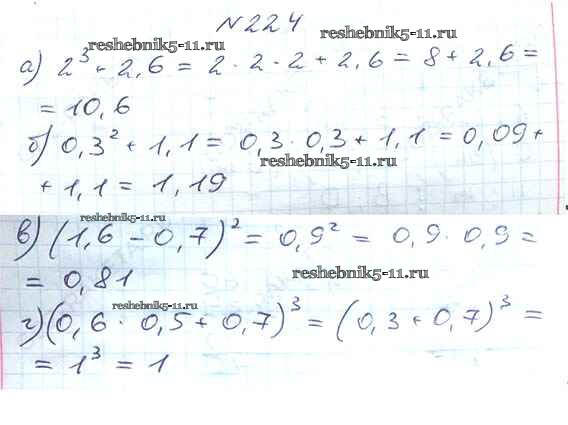 №224
reshebnik5-11.ru
а) 2³ + 2,6 = 2 · 2 · 2 + 2,6 = 8 + 2,6 =
= 10,6
б) 0,3² + 1,1 = 0,3 · 0,3 + 1,1 = 0,09 +
reshebnik5-11.ru
+ 1,1 = 1,19
reshebnik5-11.ru
в) (1,6 - 0,7)² = 0,9² = 0,9 · 0,9 =
= 0,81
reshebnik5-11.ru
reshebnik5-11.ru
г) (0,6 · 0,5 + 0,7)³ = (0,3 + 0,7)³ =
= 1³ = 1